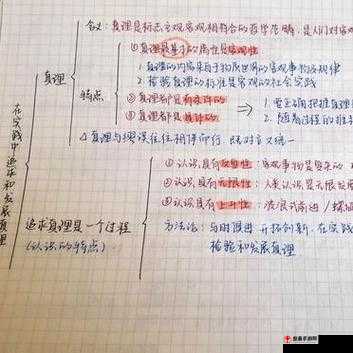 在实践中追求和发展真理
真理
含义：真理是标志主观客观相符合的哲学范畴，是人们对客观
特点
①真理最基本的属性是客观性
1.真理的内容来自于物质世界的客观事物及规律
2.检验真理的标准是客观的社会实践
②真理都是有条件的
③真理都是具体的
⇒
1.要正确把握真理
2.随着过程的推
△真理与谬误往往相伴而行 既对立又统一
追求真理是一个过程
(认识的特点)
①认识具有反复性：客观事物是复杂的
②认识具有无限性：人类认识是无限发展
③认识具有上升性：波浪式前进/螺旋
方法论：与时俱进 开拓创新 在实践
检验和发展真理